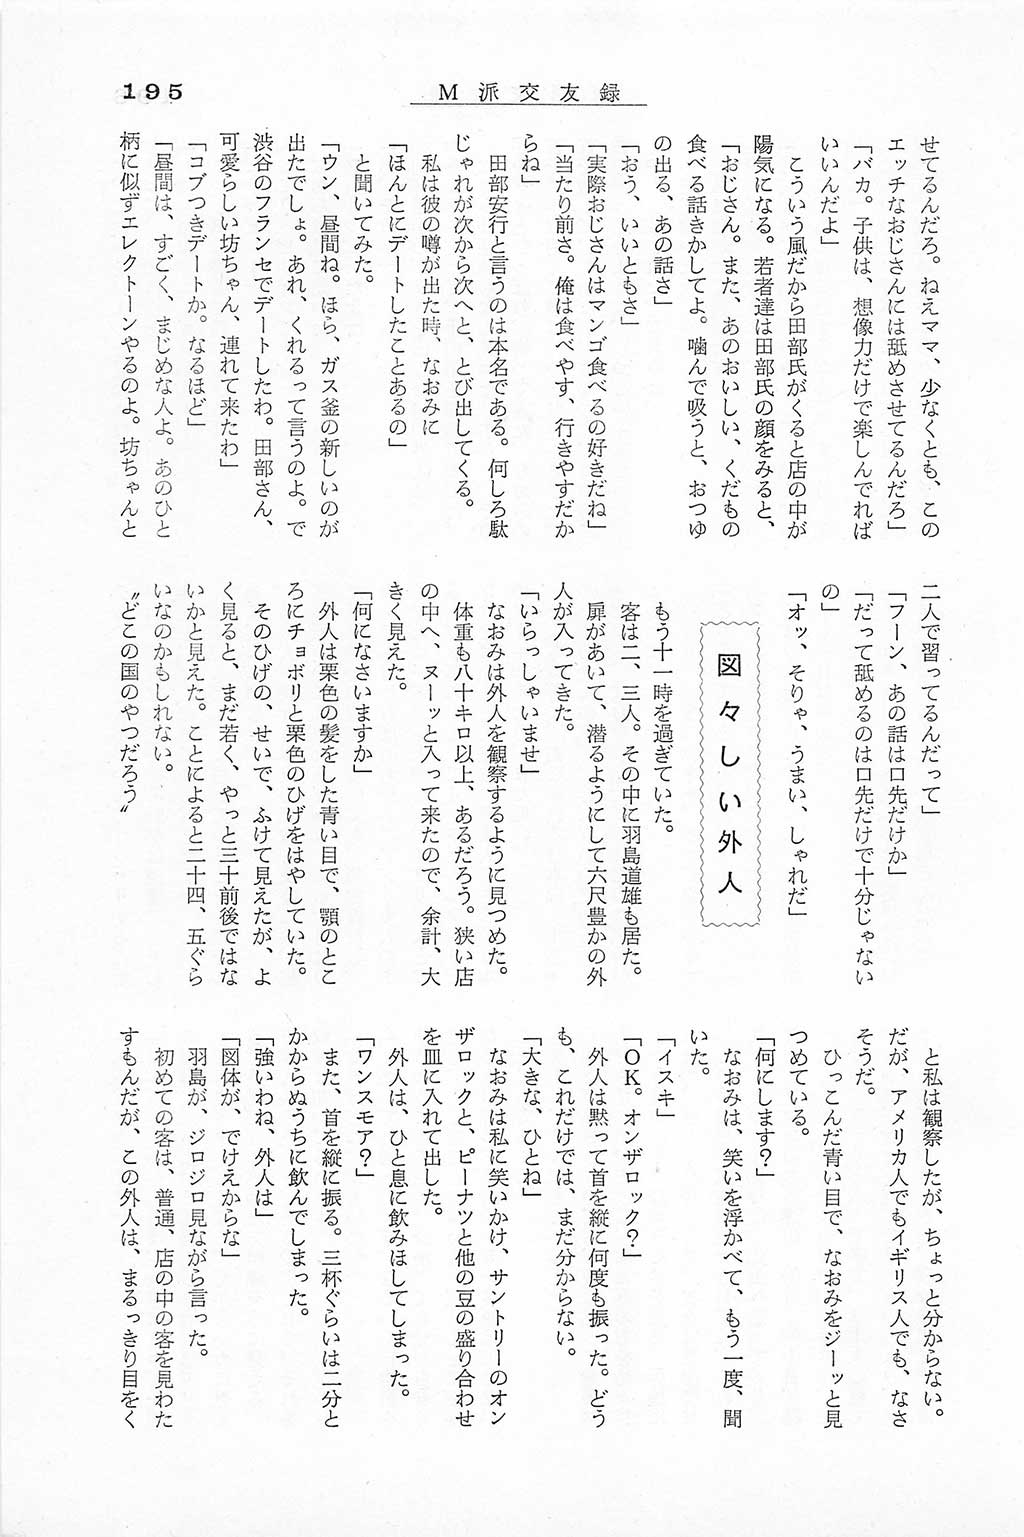 195
M派交友録
せてるんだろ。ねえママ、少なくとも、この
エッチなおじさんには舐めさせてるんだろ」
「バカ。子供は、想像力だけで楽しんでれば
いいんだよ」
こういう風だから田部氏がくると店の中が
陽気になる。若者達は田部氏の顔をみると、
「おじさん。また、あのおいしい、くだもの
食べる話きかしてよ。噛んで吸うと、おつゆ
の出る、あの話さ」
「おう、いいともさ」
「実際おじさんはマンゴ食べるの好きだね」
「当たり前さ。俺は食べやす、行きやすだか
らね」
田部安行と言うのは本名である。何しろ駄
じゃれが次から次へと、とび出してくる。
私は彼の噂が出た時、なおみに
「ほんとにデートしたことあるの」
と聞いてみた。
「ウン、昼間ね。ほら、ガス釜の新しいのが
出たでしょ。あれ、くれるって言うのよ。で
渋谷のフランセでデートしたわ。田部さん、
可愛らしい坊ちゃん、連れて来たわ」
「コブつきデートか。なるほど」
「昼間は、すごく、まじめな人よ。あのひと
柄に似ずエレクトーンやるのよ。坊ちゃんと
二人で習ってるんだって」
「フーン、あの話は口先だけか」
「だって舐めるのは口先だけで十分じゃない
の」
「オッ、そりゃ、うまい、しゃれだ」
図々しい外人
もう十一時を過ぎていた。
客は二、三人。その中に羽島道雄も居た。
扉があいて、潜るようにして六尺豊かの外
人が入ってきた。
「いらっしゃいませ」
なおみは外人を観察するように見つめた。
体重も八十キロ以上、あるだろう。狭い店
の中へ、ヌーッと入って来たので、余計、大
きく見えた。
「何になさいますか」
外人は栗色の髪をした青い目で、顎のとこ
ろにチョボリと栗色のひげをはやしていた。
そのひげの、せいで、ふけて見えたが、よ
く見ると、まだ若く、やっと三十前後ではな
いかと見えた。ことによると二十四、五ぐら
いなのかもしれない。
〝どこの国のやつだろう〟
と私は観察したが、ちょっと分からない。
だが、アメリカ人でもイギリス人でも、なさ
そうだ。
ひっこんだ青い目で、なおみをジーッと見
つめている。
「何にします？」
なおみは、笑いを浮かべて、もう一度、聞
いた。
「イスキ」
「OK。オンザロック？」
外人は黙って首を縦に何度も振った。どう
も、これだけでは、まだ分からない。
「大きな、ひとね」
なおみは私に笑いかけ、サントリーのオン
ザロックと、ピーナツと他の豆の盛り合わせ
を皿に入れて出した。
外人は、ひと息に飲みほしてしまった。
「ワンスモア？」
また、首を縦に振る。三杯ぐらいは二分と
かからぬうちに飲んでしまった。
「強いわね、外人は」
「図体が、でけえからな」
羽島が、ジロジロ見ながら言った。
初めての客は、普通、店の中の客を見わた
すもんだが、この外人は、まるっきり目をく